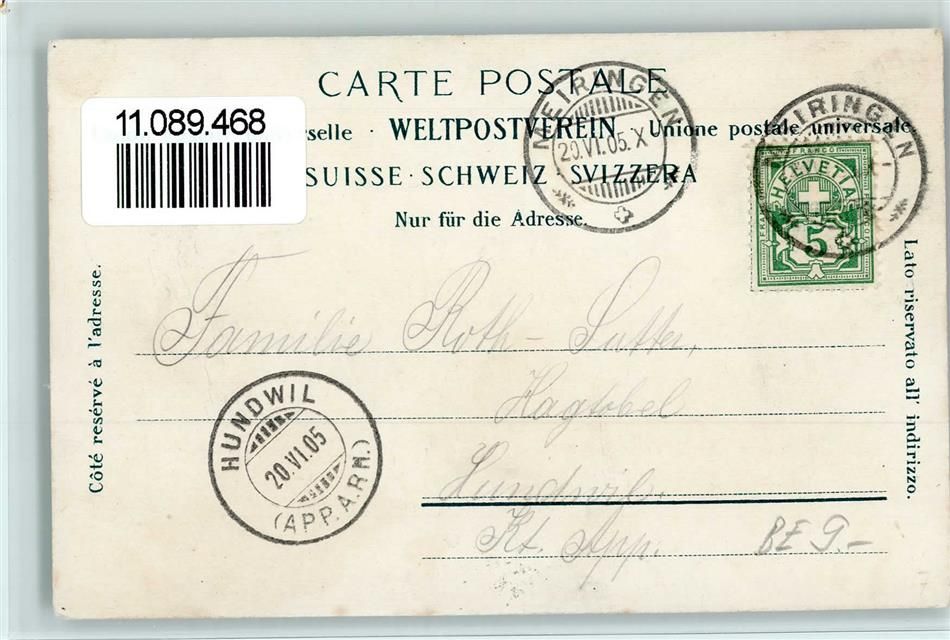 CARTE POSTALE
11.089.468
selle · WELTPOSTVEREIN · Unione postale universale
SUISSE · SCHWEIZ · SVIZZERA
Nur für die Adresse.
MEIRINGEN
20.VI.05.X
MEIRINGEN
FRANCO
HELVETIA
5
Côté resérvé à l'adresse.
Lato riservato all' indirizzo.
Familie Roth-Sutter,
Hagtobel
Hundwil.
Kt. App.
HUNDWIL
20.VI.05
(APP.A.RH.)
BE 9.-